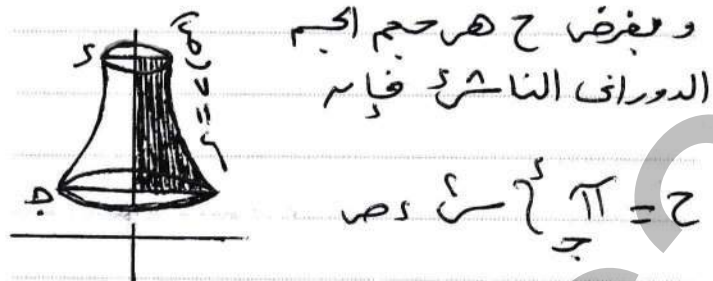 و بفرض ح هو حجم الجسم
الدورانى الناشئ فإنه
ح = π ∫ س² ء ص
ء
جـ
ء
جـ